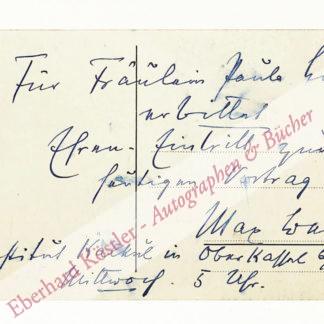 Für Fräulein Paula
erbittet
Ehren-Eintritt zum
heutigen Vortrag
Max
in Oberkassel
Mittwoch. 5 Uhr.
Eberhard Köstler - Autographen & Bücher